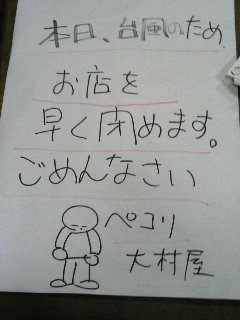 本日、台風のため
お店を
早く閉めます。
ごめんなさい
ペコリ
大村屋